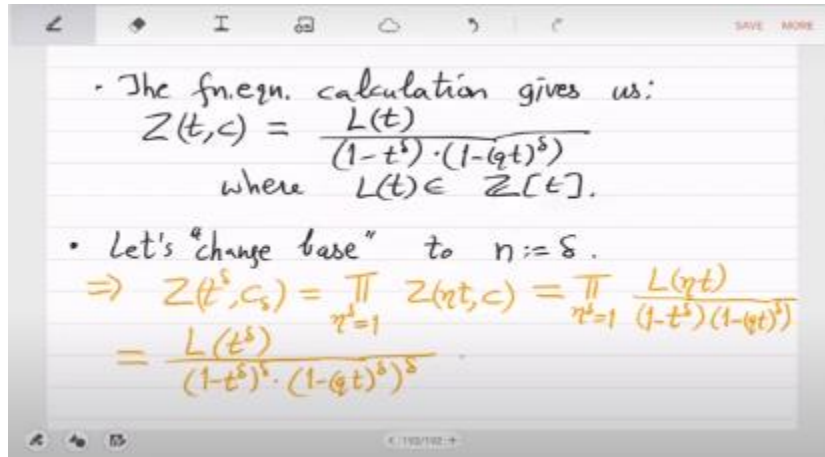 SAVE MORE
· The fn.eqn. calculation gives us:
Z(t,c) = L(t) / (1-t^δ)·(1-(qt)^δ)
where L(t) ∈ Z[t].
· Let's "change base" to n := δ.
⇒ Z(t^δ, c_δ) = ∏_{η^δ=1} Z(ηt,c) = ∏_{η^δ=1} L(ηt) / (1-t^δ)(1-(qt)^δ)
= L(t^δ) / (1-t^δ)^δ · (1-(qt)^δ)^δ
< 192/192 +